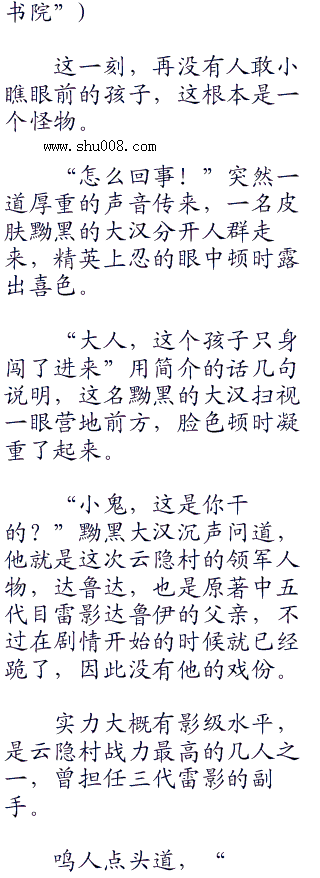 书院”）
这一刻，再没有人敢小
瞧眼前的孩子，这根本是一
个怪物。
www.shu008.com
“怎么回事！”突然一
道厚重的声音传来，一名皮
肤黝黑的大汉分开人群走
来，精英上忍的眼中顿时露
出喜色。
“大人，这个孩子只身
闯了进来”用简介的话几句
说明，这名黝黑的大汉扫视
一眼营地前方，脸色顿时凝
重了起来。
“小鬼，这是你干
的？”黝黑大汉沉声问道，
他就是这次云隐村的领军人
物，达鲁达，也是原著中五
代目雷影达鲁伊的父亲，不
过在剧情开始的时候就已经
跪了，因此没有他的戏份。
实力大概有影级水平，
是云隐村战力最高的几人之
一，曾担任三代雷影的副
手。
鸣人点头道，“